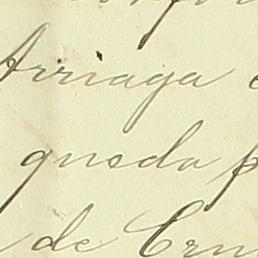 Arriaga
queda
de Cru